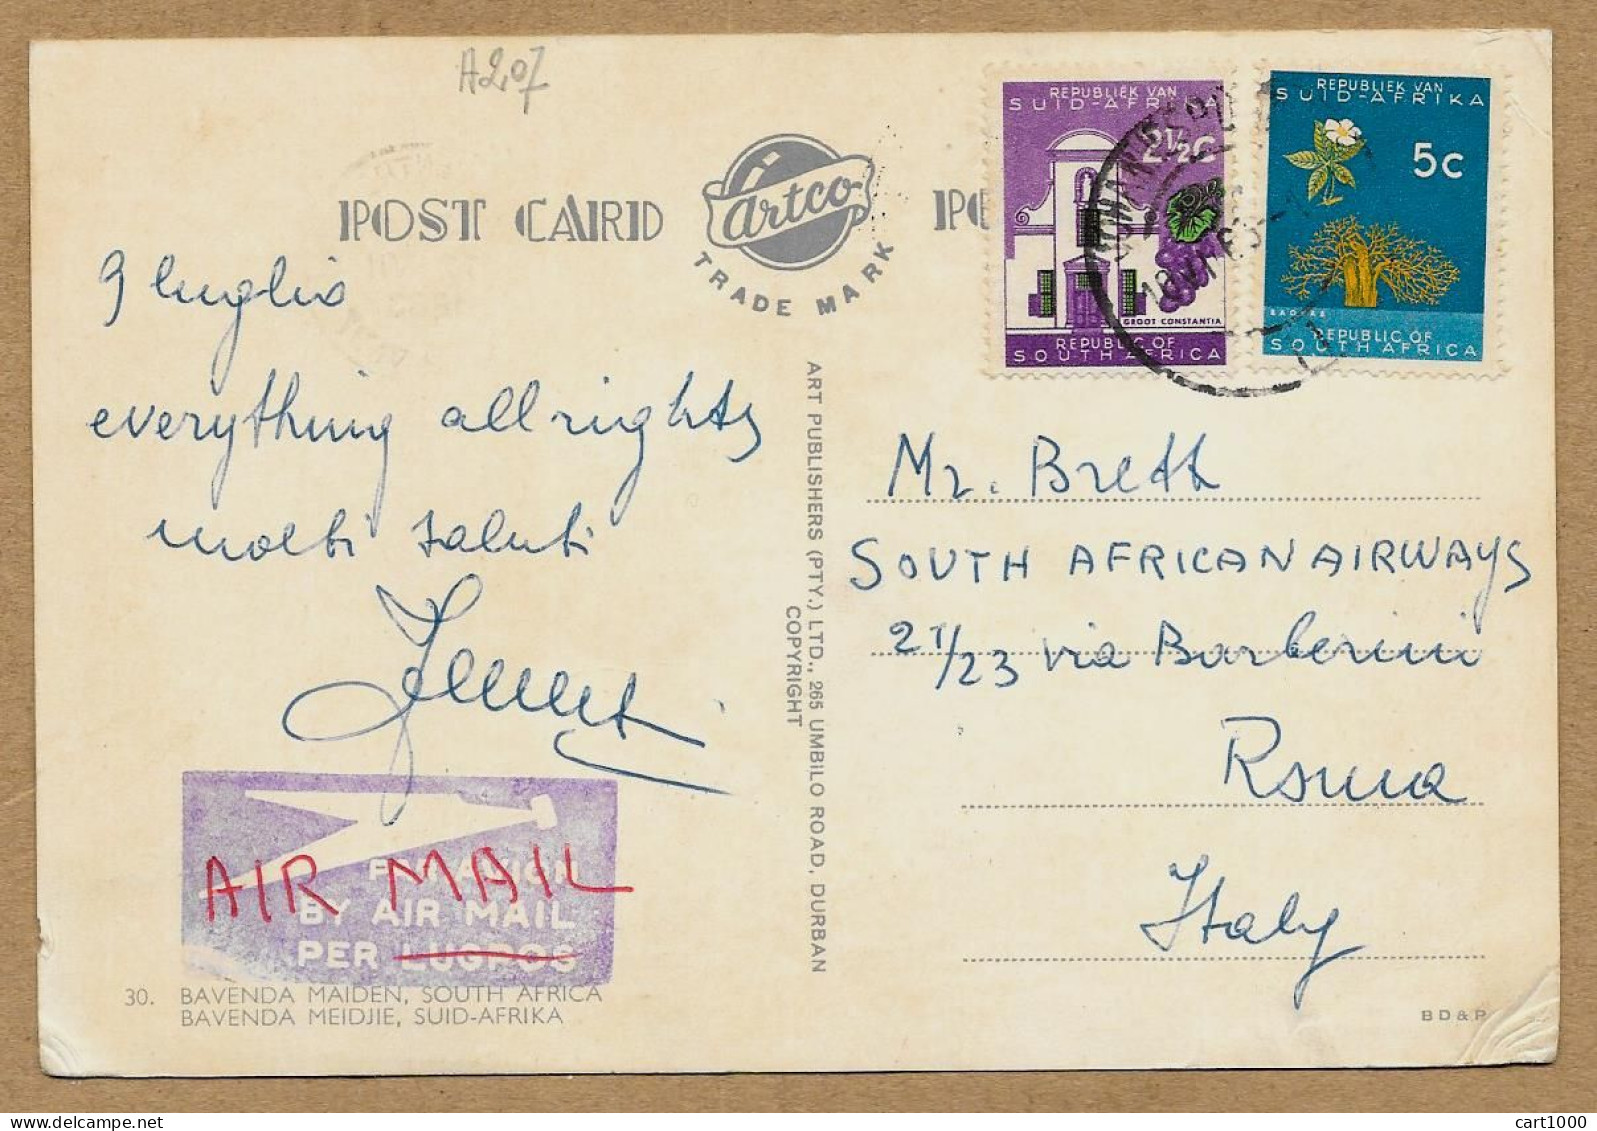 A207
POST CARD
artco
TRADE MARK
REPUBLIEK VAN
SUID-AFRIKA
2½C
GROOT CONSTANTIA
REPUBLIC OF
SOUTH AFRICA
REPUBLIEK VAN
SUID-AFRIKA
5c
REPUBLIC OF
SOUTH AFRICA
9 luglio
everything all rights
molti saluti
ART PUBLISHERS (PTY.) LTD., 265 UMBILO ROAD, DURBAN
COPYRIGHT
Mr. Brett
SOUTH AFRICAN AIRWAYS
21/23 via Barberini
Roma
Italy
AIR MAIL
PAR AVION
BY AIR MAIL
PER LUGPOS
30. BAVENDA MAIDEN, SOUTH AFRICA
BAVENDA MEIDJIE, SUID-AFRIKA
BD&P
cart1000